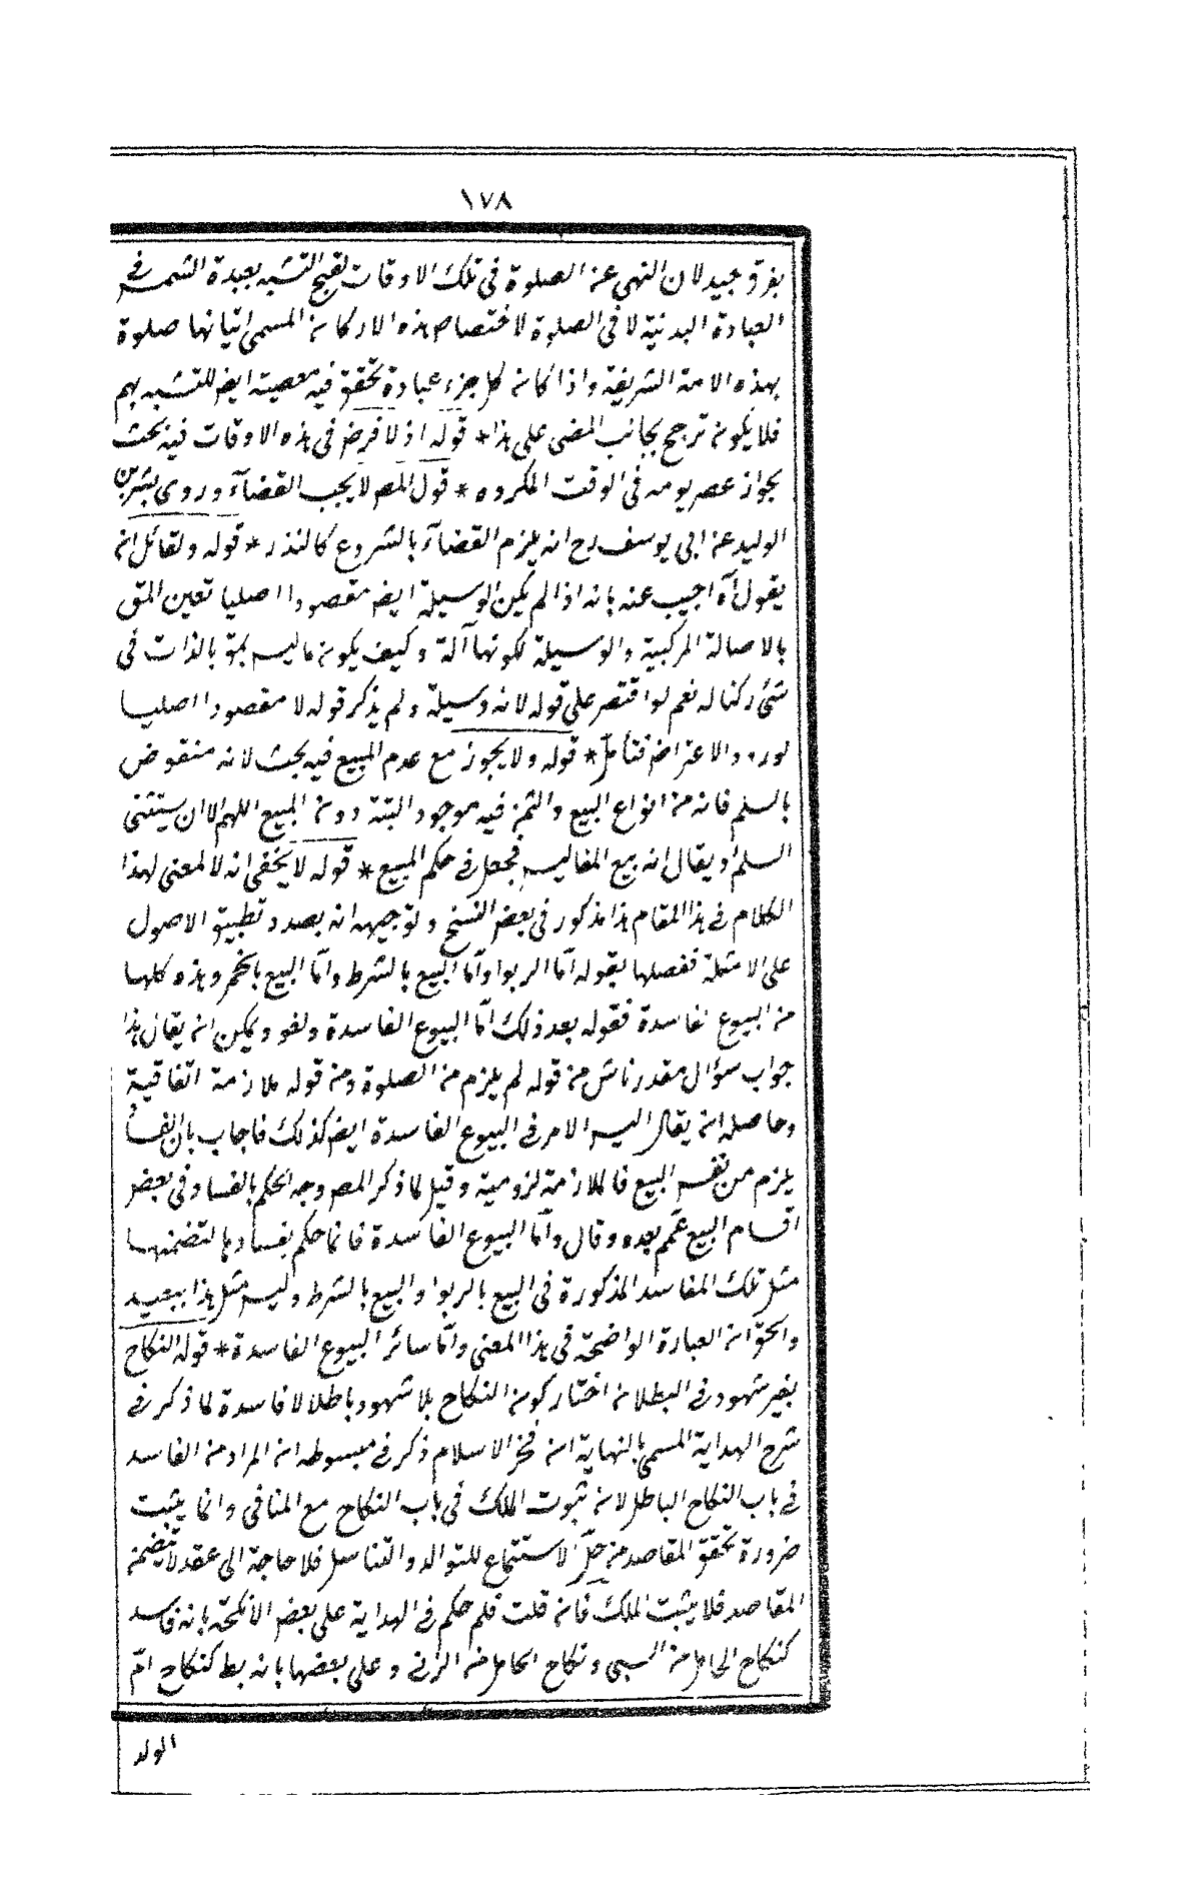 ١٧٨
بفرق جيد لان النهى عن الصلوة فى تلك الاوقات لقبح التشبه بعبدة الشمس فى
العبادة البدنية لا فى الصلوة لاختصاص هذه الاركان المسمى اتيانها صلوة
بهذه الامة الشريفة واذا كان كل جزء عبادة تحقق فيه معصية ايض للتشبه بهم
فلا يكون ترجح بجانب المضى على هذا * قوله اذ لا فرض فى هذه الاوقات فيه بحث
بجواز عصر يومه فى الوقت المكروه * قول المص لا يجب القضآء وروى بشر بن
الوليد عن ابى يوسف رح انه يلزم القضآء بالشروع كالنذر * قوله ولقائل ان
يقول آه اجيب عنه بانه اذا لم يكن الوسيلة ايض مقصودا اصليا تعين المق
بالاصالة المركبية والوسيلة لكونها آلة وكيف يكون ما ليس بمق بالذات فى
شئ ركنا له نعم لو اقتصر على قوله لانه وسيلة ولم يذكر قوله لا مقصودا اصليا
لورد والاعتراض فتأمل * قوله ولا يجوز مع عدم المبيع فيه بحث لانه منقوض
بالسلم فانه من انواع البيع والثمن فيه موجود البتة دون المبيع اللهم الا ان يستثنى
السلم او يقال انه بيع المفاليس فجعل فى حكم المبيع * قوله لا يخفى انه لا معنى لهذا
الكلام فى هذا المقام هذا مذكور فى بعض النسخ وتوجيهه انه بصدد تطبيق الاصول
على الامثلة ففصلها بقوله امّا الربوا وامّا البيع بالشرط وامّا البيع بالخمر وهذه كلها
من البيوع الفاسدة فقوله بعد ذلك امّا البيوع الفاسدة ولغو ويمكن ان يقال هذا
جواب سؤال مقدر ناش من قوله لم يلزم من الصلوة ومن قوله ملازمة اتفاقية
وحاصله ان يقال اليس الامر فى البيوع الفاسدة ايض كذلك فاجاب بان الفسا
يلزم من نفس البيع فالملازمة لزومية وقيل لما ذكر المص وجه الحكم بالفساد فى بعض
اقسام البيع عمّم بعده وقال وامّا البيوع الفاسدة فانما حكم بفسادها لتضمنها
مثل تلك المفاسد المذكورة فى البيع بالربوا والبيع بالشرط وليس مثل هذا ببعيد
والحق ان العبارة الواضحة فى هذا المعنى وامّا سائر البيوع الفاسدة * قوله النكاح
بغير شهود فى البطلان اختار كون النكاح بلا شهود باطلا لا فاسدة لما ذكر فى
شرح الهداية المسمى بالنهاية ان فخر الاسلام ذكر فى مبسوطه ان المراد من الفاسد
فى باب النكاح الباطل لان ثبوت الملك فى باب النكاح مع المنافى وانما يثبت
ضرورة تحقق المقاصد من حلّ الاستمتاع للتوالد والتناسل فلا حاجة الى عقد لا يتضمن
المقاصد فلا يثبت الملك فان قلت فلم حكم فى الهداية على بعض الانكحة بانه فاسد
كنكاح الحامل من السبى ونكاح الحامل من الزنى وعلى بعضها بانه بط كنكاح امّ
الولد